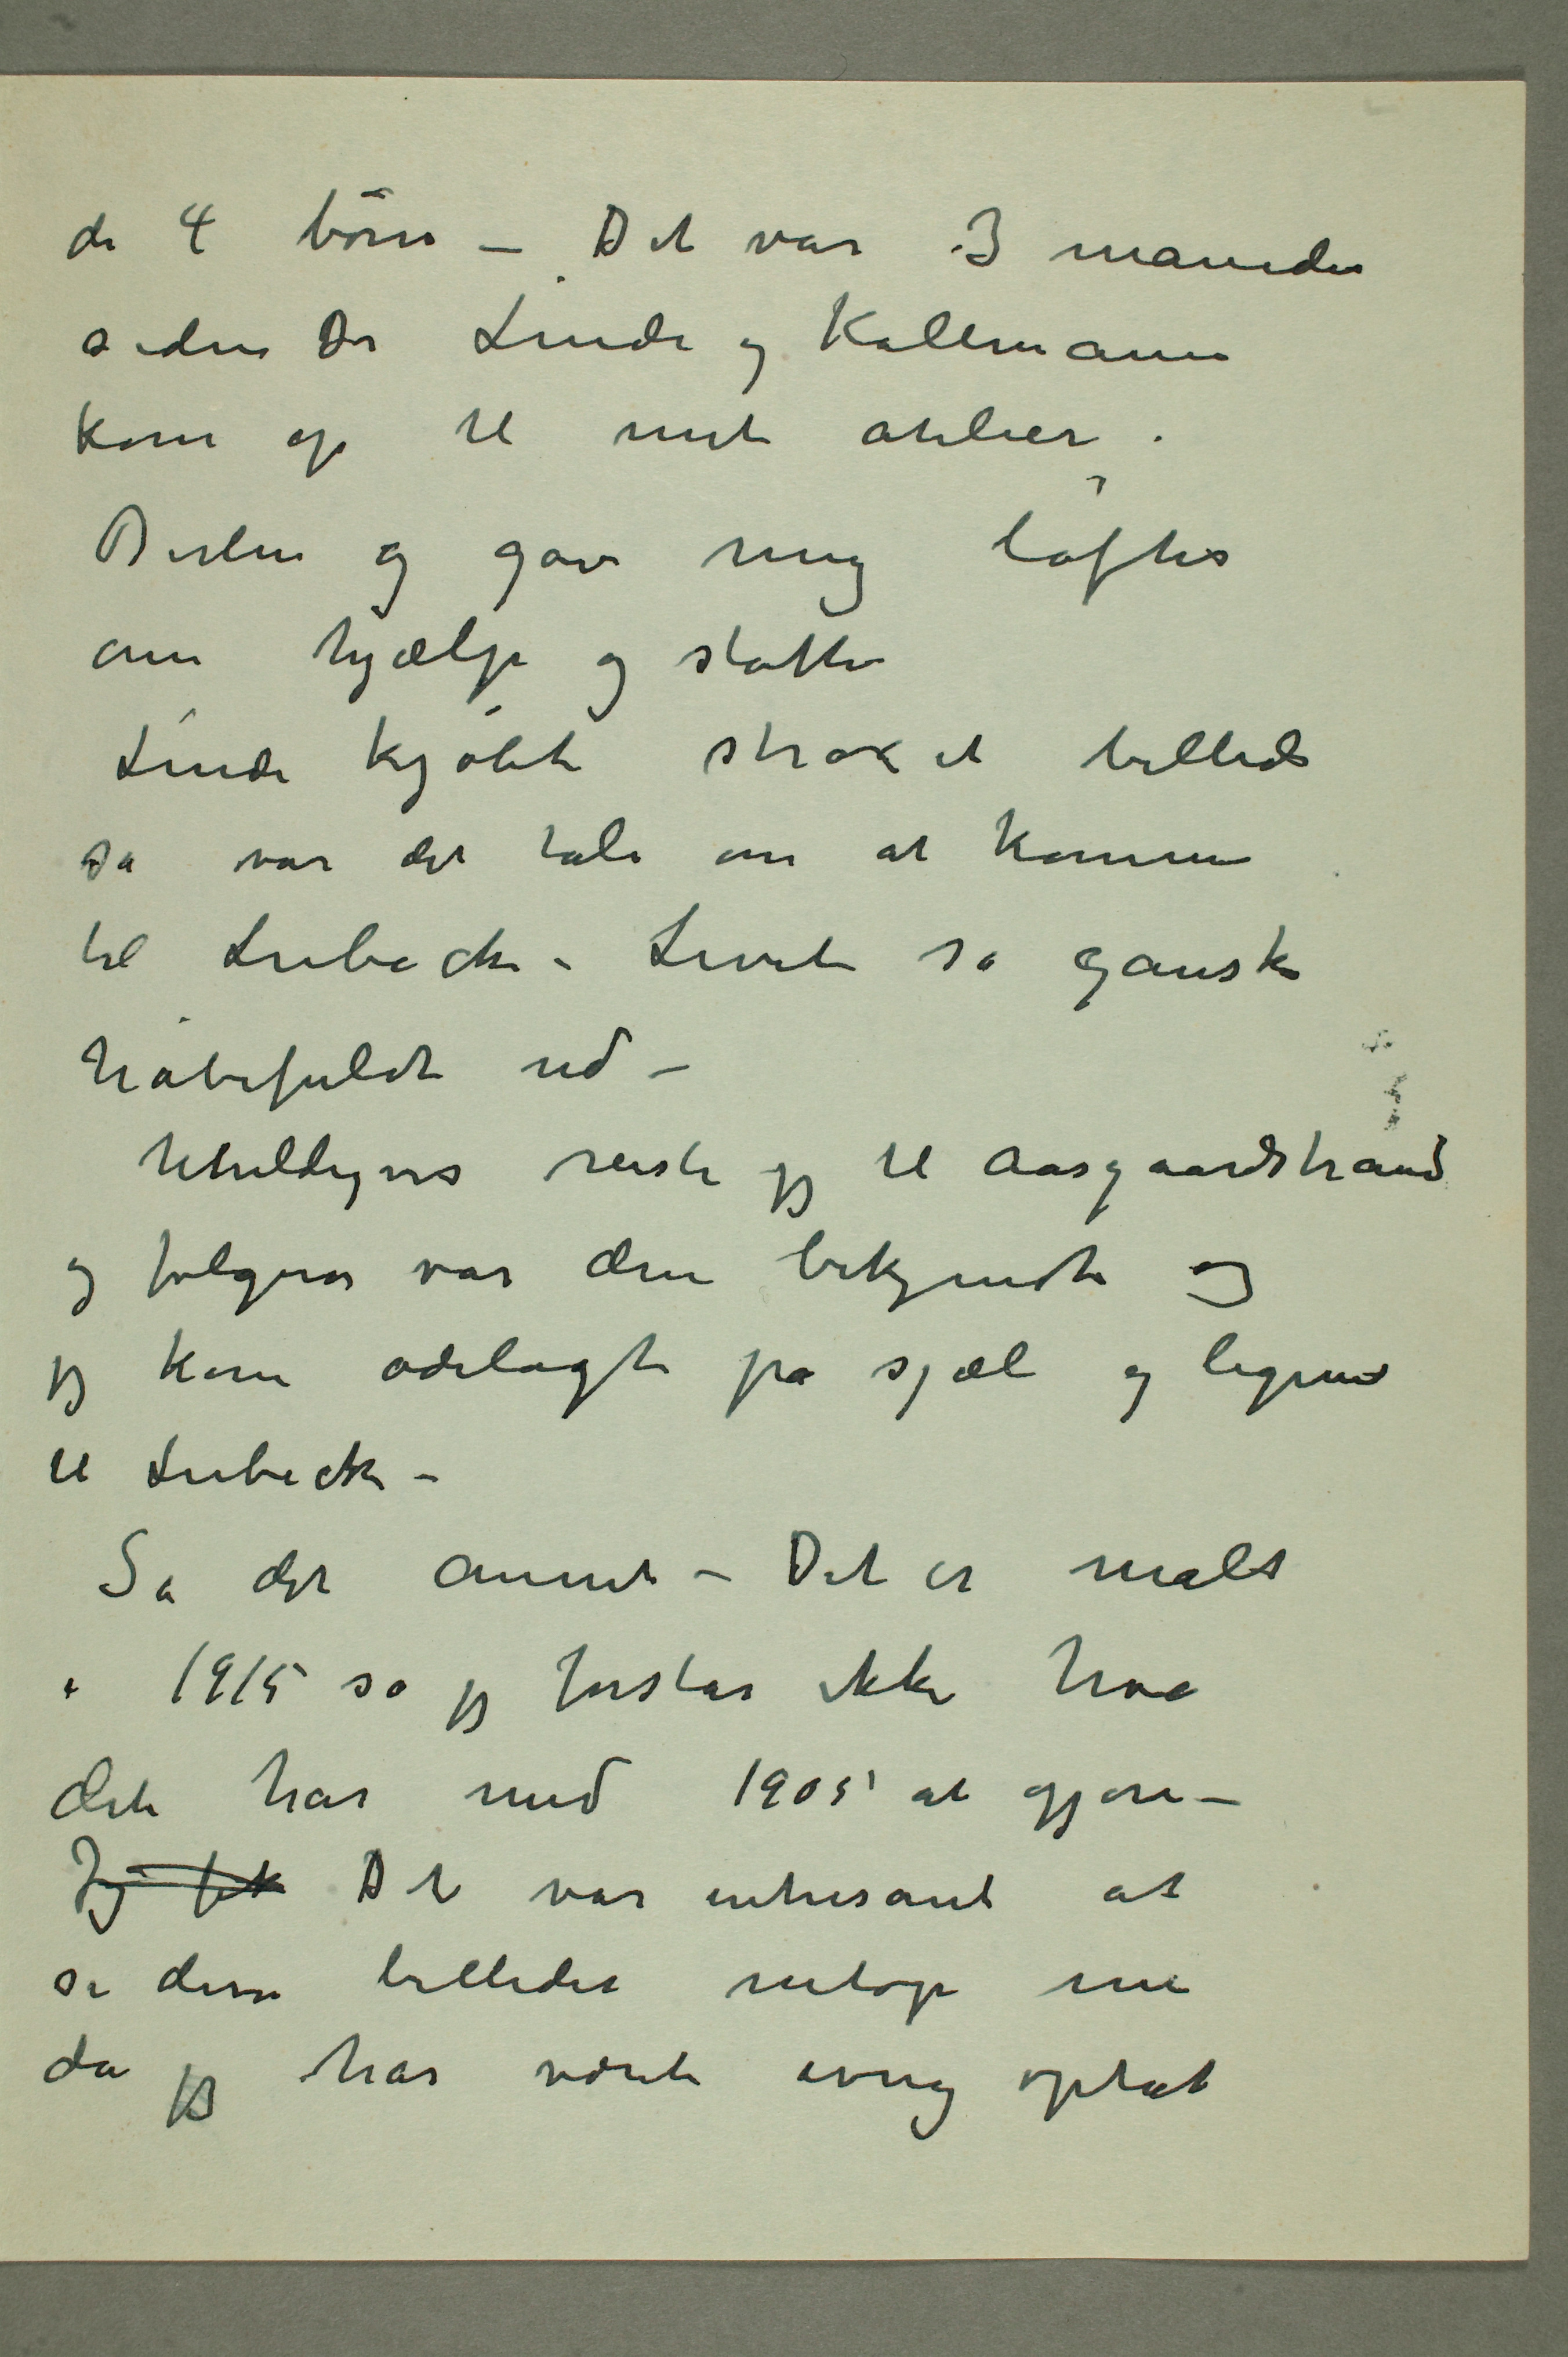 de 4 börn – Det var 3 måneder
siden Dr Linde og Kollmann
kom op til mit atelier i
Berlin og gav mig löfte
om hjælp og støtte
Linde kjöbte strax et billede
så var det tale om at komme
til Lubeck – Livet så ganske
håbefuldt ud –
Uheldigvis reiste jeg til Aasgaardstrand
og følgen var den bekjendte og
jeg kom ødelagt på sjæl og legeme
til Lubeck –
Så det annet – Det er malt
i 1915 så jeg forstår ikke hva
det har med 1905 at gjøre –
Jeg fik Det var intresant at
se disse billeder netop nu
da jeg har været ivrig optat